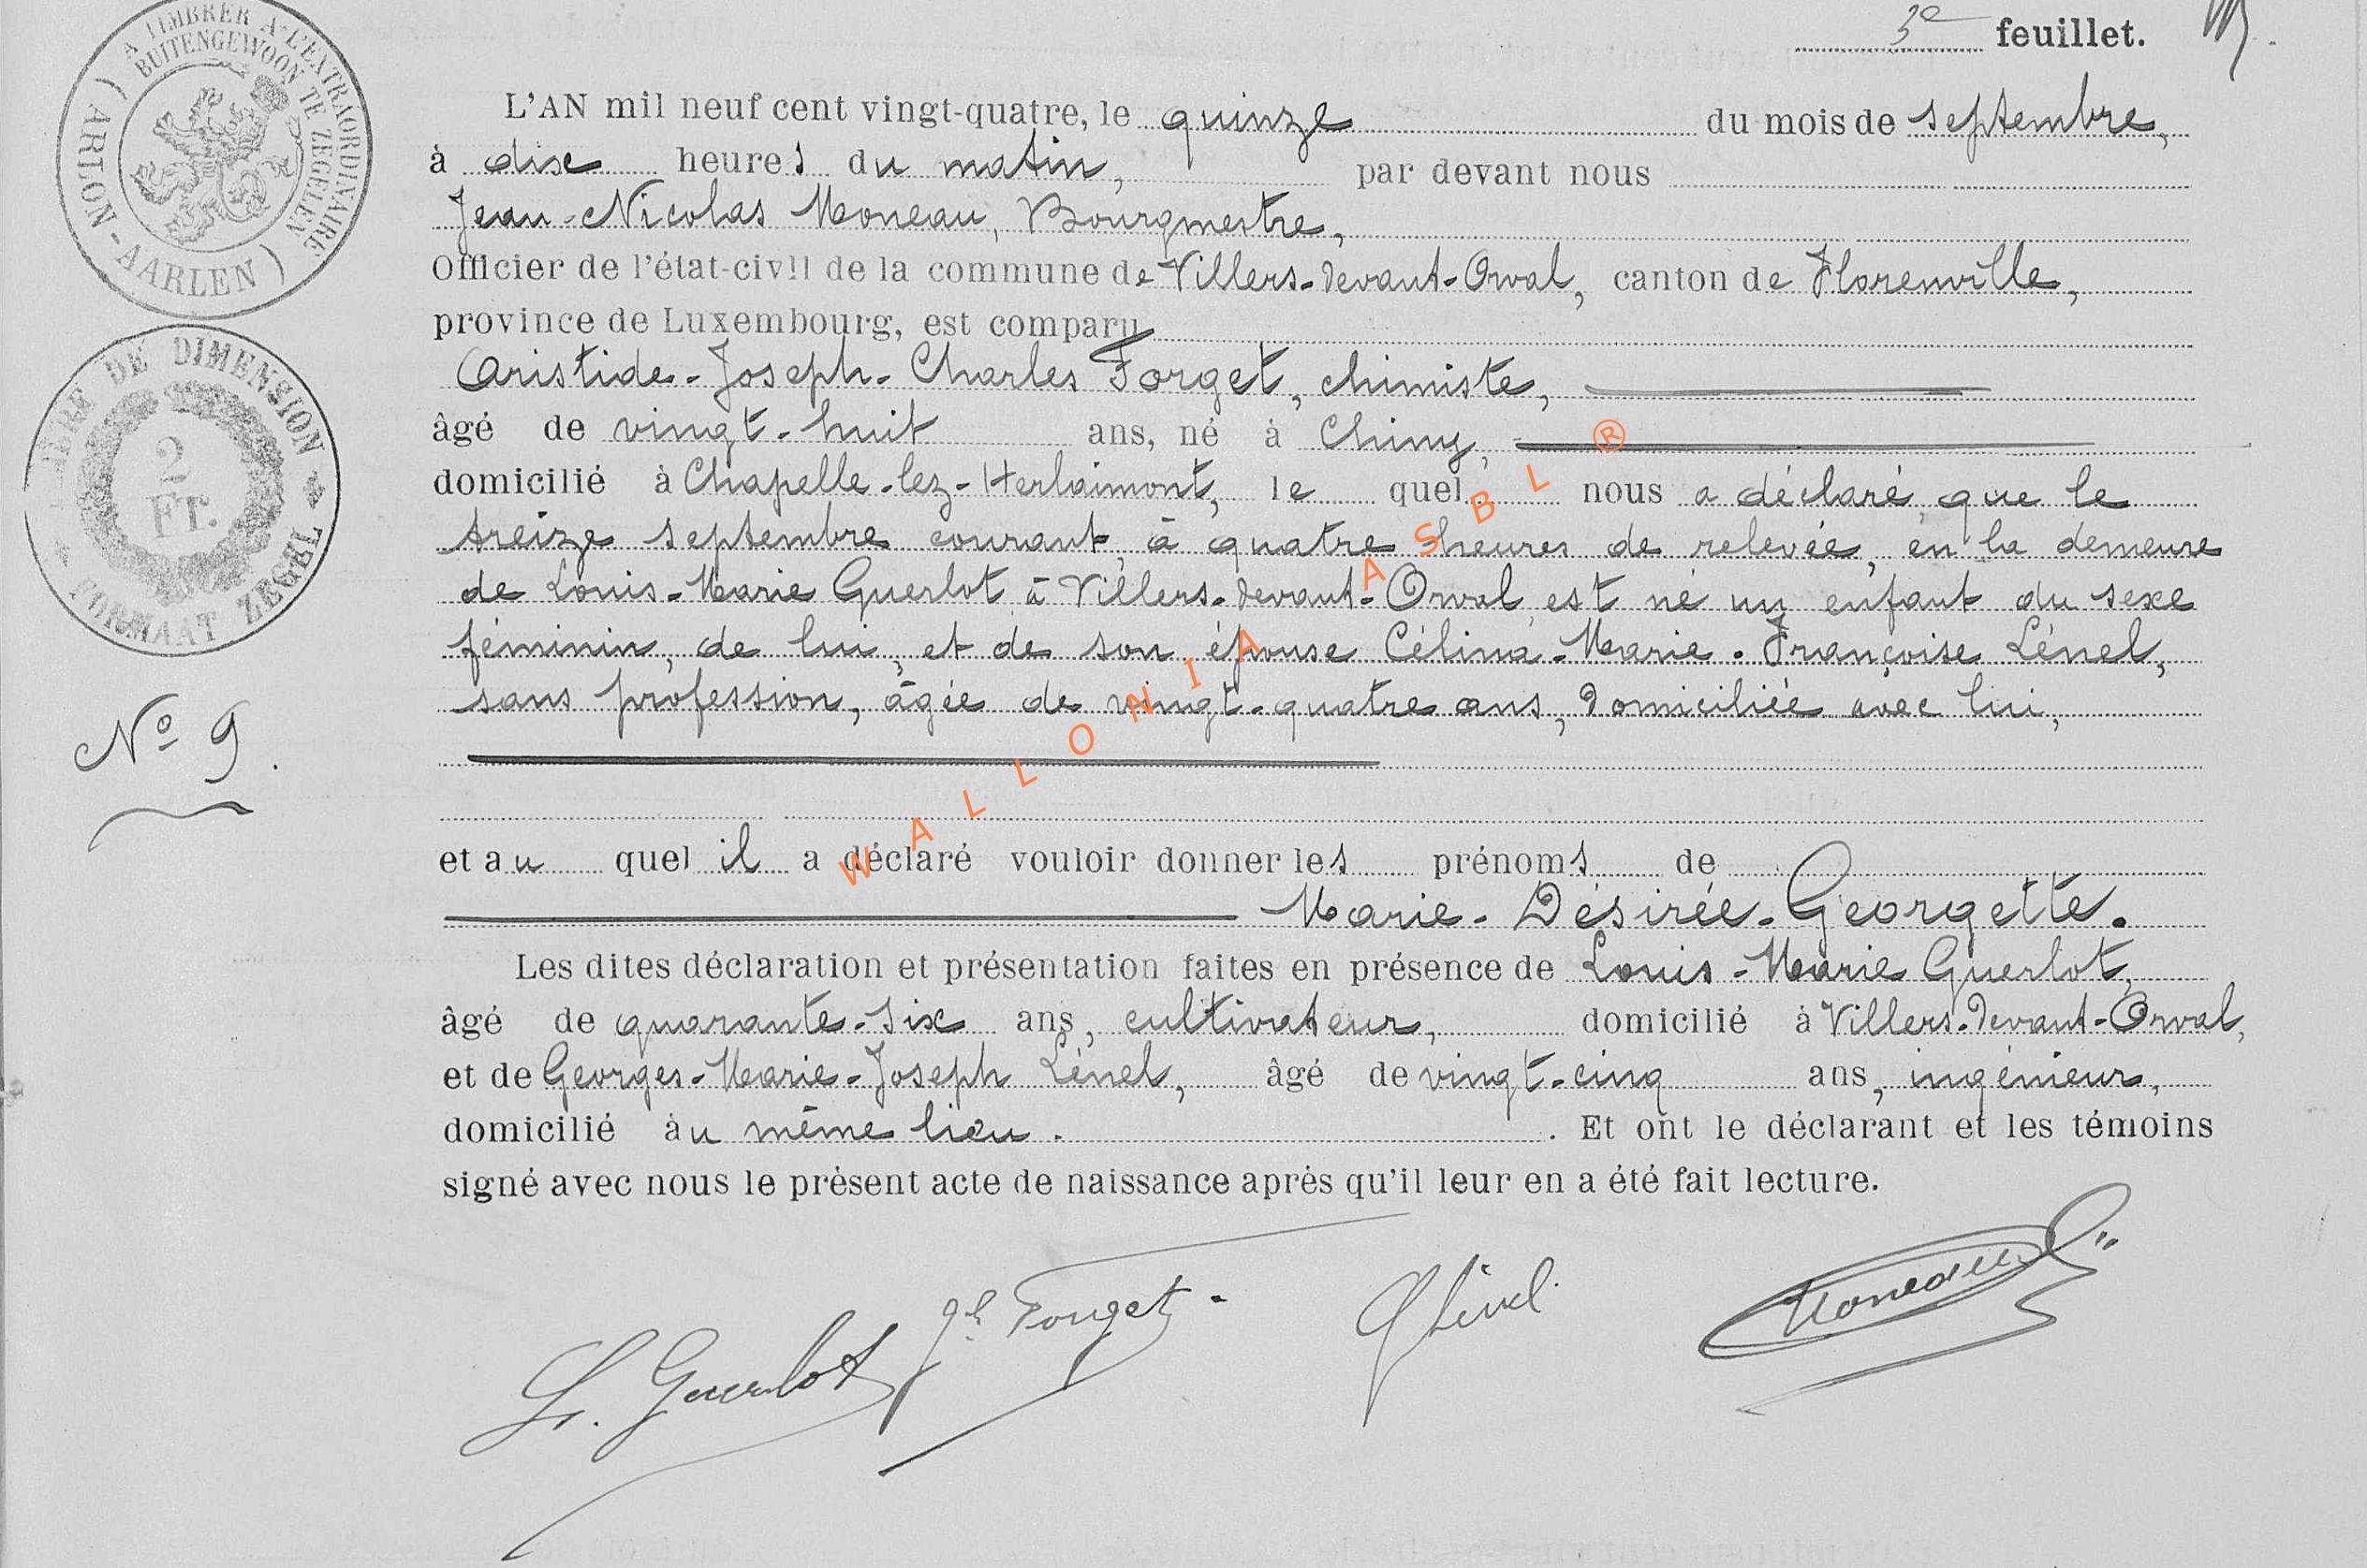 A TIMBRER A L'EXTRAORDINAIRE
BUITENGEWOON TE ZEGELEN
( ARLON - AARLEN )
3e feuillet.
L'AN mil neuf cent vingt-quatre, le quinze du mois de septembre,
à dix heures du matin, par devant nous
Jean-Nicolas Moneau, Bourgmestre,
Officier de l'état-civil de la commune de Villers-devant-Orval, canton de Florenville,
province de Luxembourg, est comparu
Aristide-Joseph-Charles Forget, chimiste,
âgé de vingt-huit ans, né à Chiny,
domicilié à Chapelle-lez-Herlaimont, le quel nous a déclaré que le
treize septembre courant, à quatre heures de relevée, en la demeure
de Louis-Marie Guerlot à Villers-devant-Orval est né un enfant du sexe
féminin, de lui, et de son épouse Célina-Marie-Françoise Lénel,
sans profession, âgée de vingt-quatre ans, domiciliée avec lui,
et au quel il a déclaré vouloir donner les prénoms de
Marie-Désirée-Georgette.
Les dites déclaration et présentation faites en présence de Louis-Marie Guerlot,
âgé de quarante-six ans, cultivateur, domicilié à Villers-devant-Orval,
et de Georges-Marie-Joseph Lénel, âgé de vingt-cinq ans, ingénieur,
domicilié àu même lieu. . Et ont le déclarant et les témoins
signé avec nous le présent acte de naissance après qu'il leur en a été fait lecture.
TIMBRE DE DIMENSION
2
Fr.
FORMAAT ZEGEL
No 9.
WALLONIA ASBL ®
L. Guerlot
Forget
Lénel
Moneau